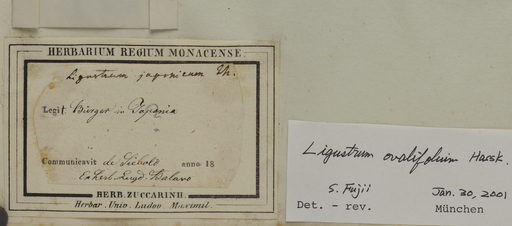 HERBARIUM REGIUM MONACENSE.
Ligustrum japonicum Th.
Legit Bürger in Japonia
Communicavit de Siebold anno 18
Ex herb. Lugd. Batavo
HERB. ZUCCARINII.
Herbar. Univ. Ludov. Maximil.
Ligustrum ovalifolium Hassk.
S. Fujii Jan. 30, 2001
Det. - rev. München